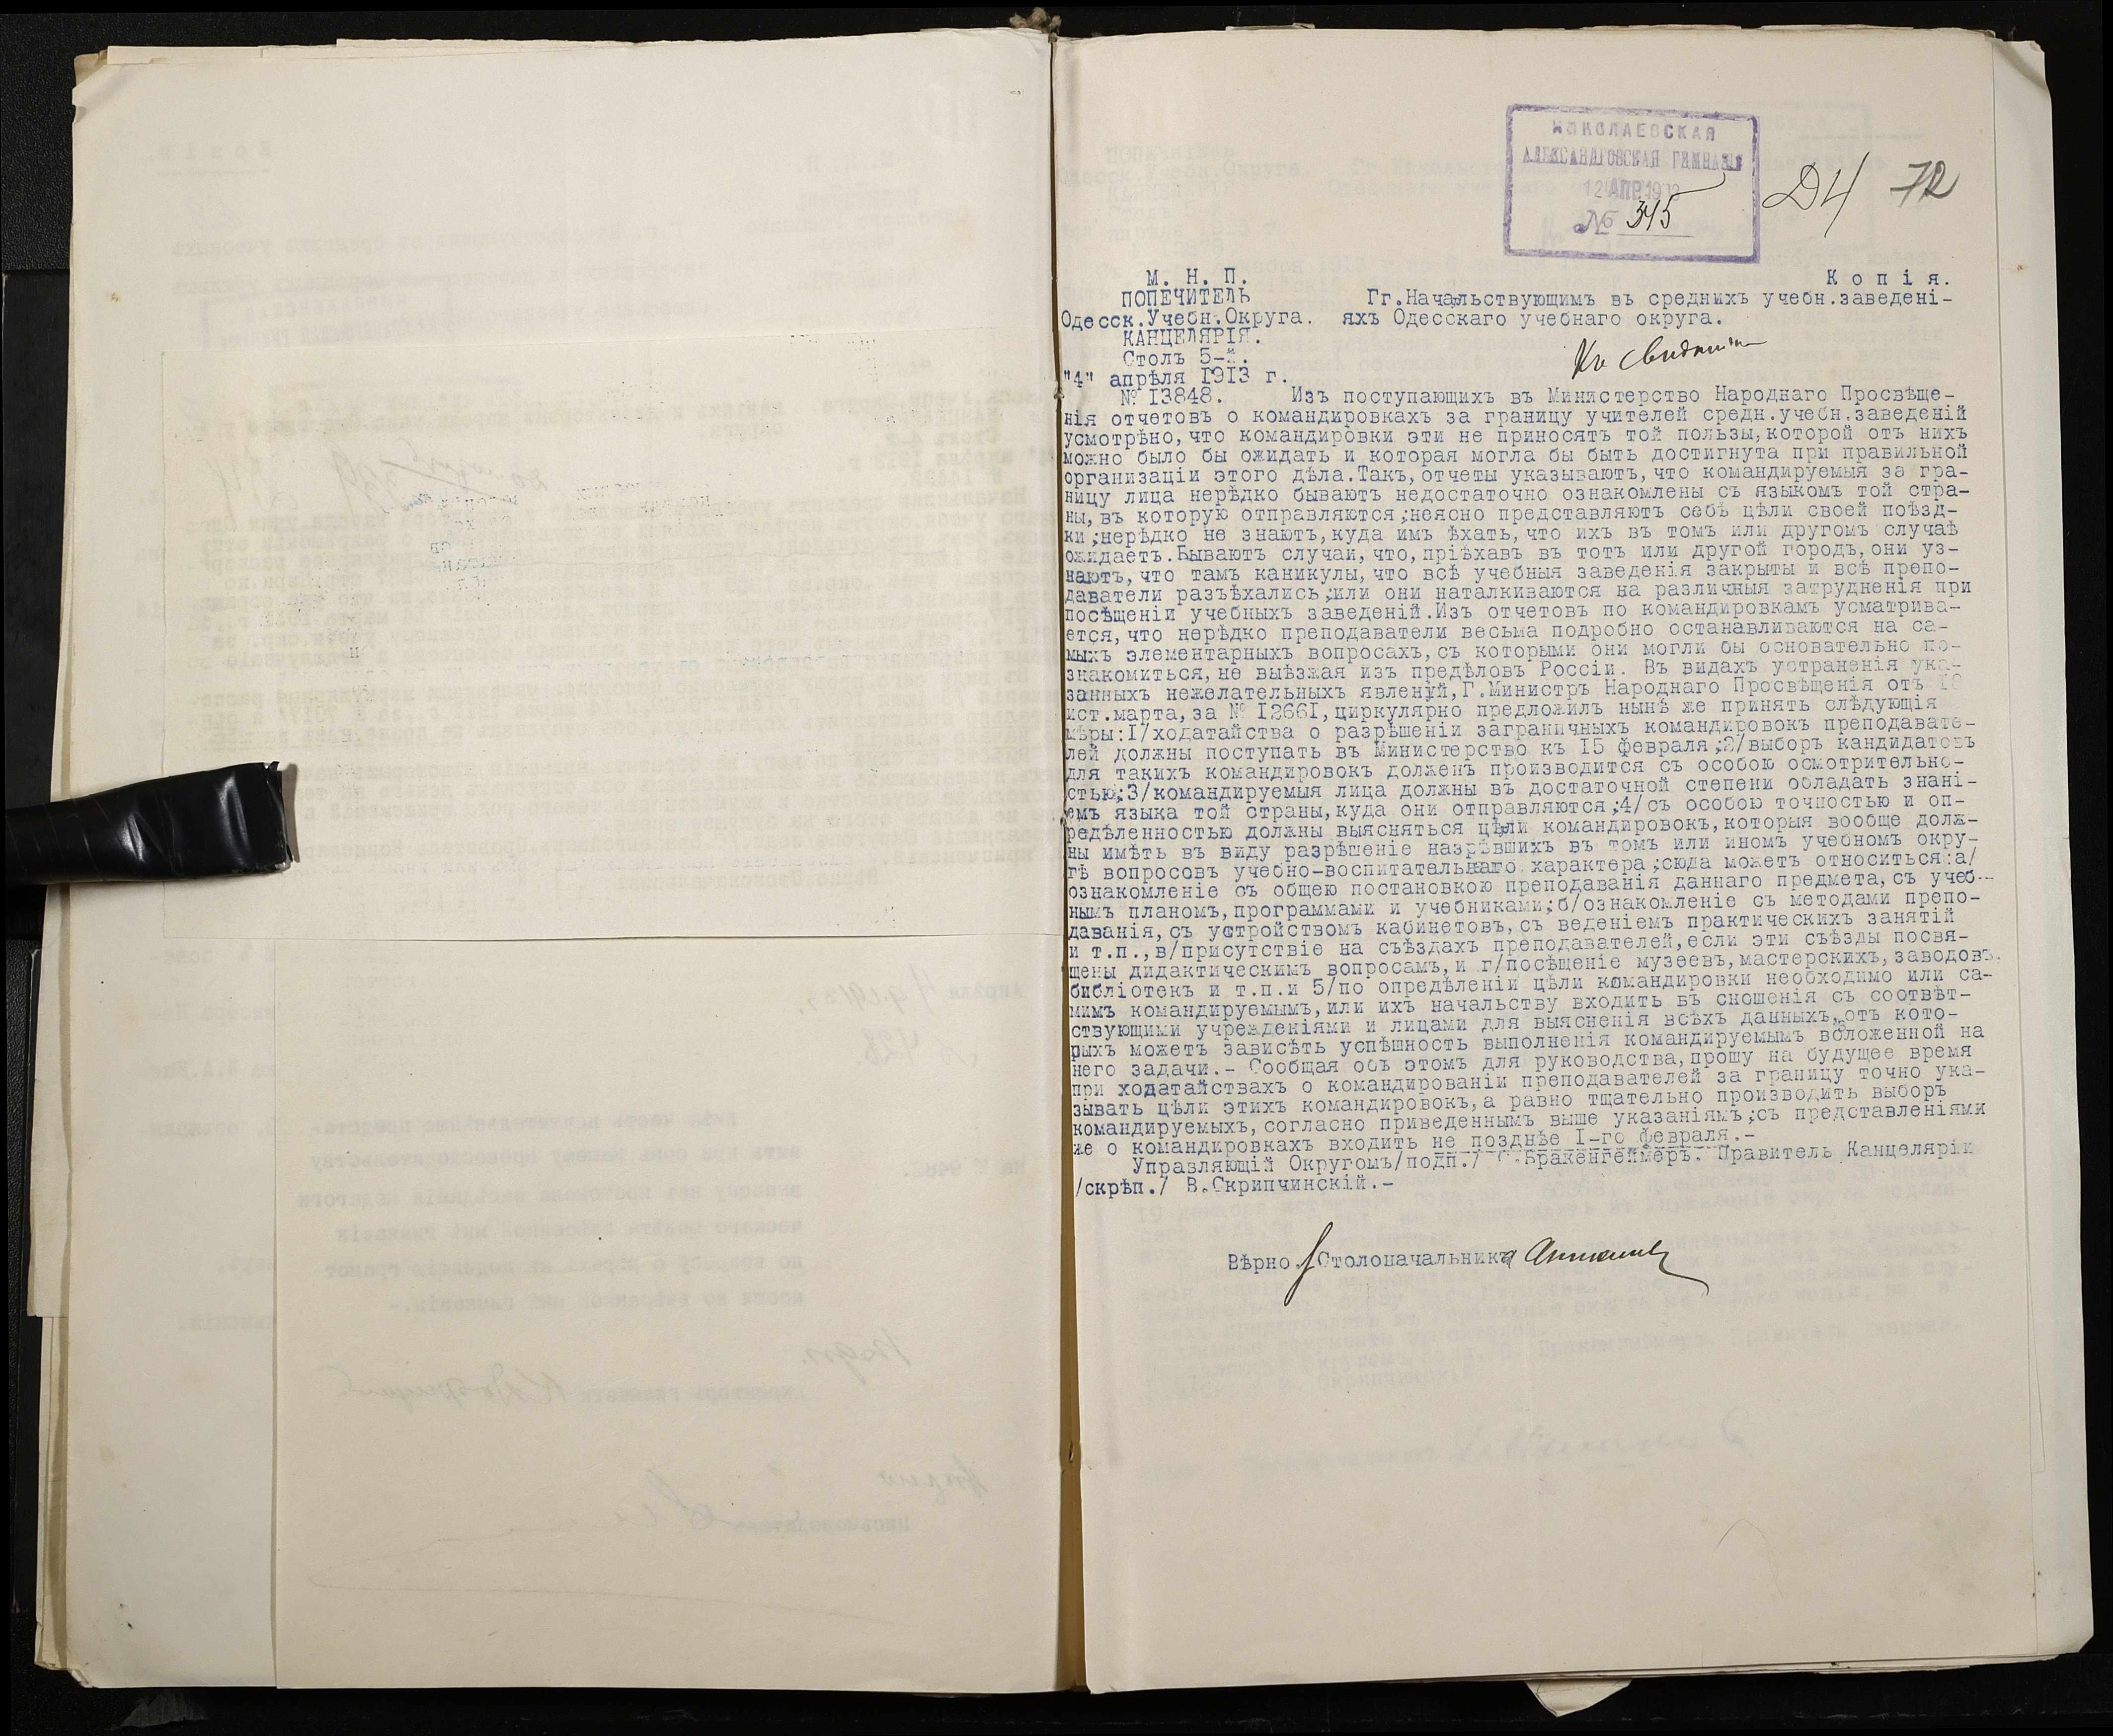 НИКОЛАЕВСКАЯ
АЛЕКСАНДРОВСКАЯ ГИМНАЗІЯ
12 АПР.1913
№ 345
Д4 72
М. Н. П.
Копія.
ПОПЕЧИТЕЛЬ
Гг.Начальствующимъ въ среднихъ учебн.заведені-
Одесск.Учебн.Округа. яхъ Одесскаго учебнаго округа.
КАНЦЕЛЯРІЯ.
Столъ 5-й.
Къ свѣдѣнію
"4" апрѣля 1913 г.
№ 13848. Изъ поступающихъ въ Министерство Народнаго Просвѣще-
нія отчетовъ о командировкахъ за границу учителей средн.учебн.заведеній
усмотрѣно,что командировки эти не приносятъ той пользы,которой отъ нихъ
можно было бы ожидать и которая могла бы быть достигнута при правильной
организаціи этого дѣла.Такъ,отчеты указываютъ,что командируемыя за гра-
ницу лица нерѣдко бываютъ недостаточно ознакомлены съ языкомъ той стра-
ны,въ которую отправляются;неясно представляютъ себѣ цѣли своей поѣзд-
ки;нерѣдко не знаютъ,куда имъ ѣхать,что ихъ въ томъ или другомъ случаѣ
ожидаетъ.Бываютъ случаи,что,пріѣхавъ въ тотъ или другой городъ,они уз-
наютъ,что тамъ каникулы,что всѣ учебныя заведенія закрыты и всѣ препо-
даватели разъѣхались;или они наталкиваются на различныя затрудненія при
посѣщеніи учебныхъ заведеній.Изъ отчетовъ по командировкамъ усматрива-
ется,что нерѣдко преподаватели весьма подробно останавливаются на са-
мыхъ элементарныхъ вопросахъ,съ которыми они могли бы основательно по-
знакомиться,не выѣзжая изъ предѣловъ Россіи. Въ видахъ устраненія ука-
занныхъ нежелательныхъ явленій,Г.Министръ Народнаго Просвѣщенія отъ
ист.марта,за № 12661,циркулярно предложилъ нынѣ же принять слѣдующія
мѣры:1/ходатайства о разрѣшеніи заграничныхъ командировокъ преподавате-
лей должны поступать въ Министерство къ 15 февраля;2/выборъ кандидатовъ
для такихъ командировокъ долженъ производится съ особою осмотрительно-
стью;3/командируемыя лица должны въ достаточной степени обладать знані-
емъ языка той страны,куда они отправляются;4/съ особою точностью и оп-
редѣленностью должны выясняться цѣли командировокъ,которыя вообще долж-
ны имѣть въ виду разрѣшеніе назрѣвшихъ въ томъ или иномъ учебномъ окру-
гѣ вопросовъ учебно-воспитательнаго характера;сюда можетъ относиться:а/
ознакомленіе съ общею постановкою преподаванія даннаго предмета,съ учеб-
нымъ планомъ,программами и учебниками;б/ознакомленіе съ методами препо-
даванія,съ устройствомъ кабинетовъ,съ веденіемъ практическихъ занятій
и т.п.,в/присутствіе на съѣздахъ преподавателей,если эти съѣзды посвя-
щены дидактическимъ вопросамъ,и г/посѣщеніе музеевъ,мастерскихъ,заводовъ,
библіотекъ и т.п.и 5/по опредѣленіи цѣли командировки необходимо или са-
мимъ командируемымъ,или ихъ начальству входить въ сношенія съ соотвѣт-
ствующими учрежденіями и лицами для выясненія всѣхъ данныхъ,отъ кото-
рыхъ можетъ зависѣть успѣшность выполненія командируемымъ возложенной на
него задачи.- Сообщая объ этомъ для руководства,прошу на будущее время
при ходатайствахъ о командированіи преподавателей за границу точно ука-
зывать цѣли этихъ командировокъ,а равно тщательно производить выборъ
командируемыхъ,согласно приведеннымъ выше указаніямъ;съ представленіями
же о командировкахъ входить не позднѣе 1-го февраля.-
Управляющій Округомъ/подп./ С.Бракенгеймеръ. Правитель Канцеляріи
/скрѣп./ В.Скрипчинскій.-
Вѣрно. Столоначальника